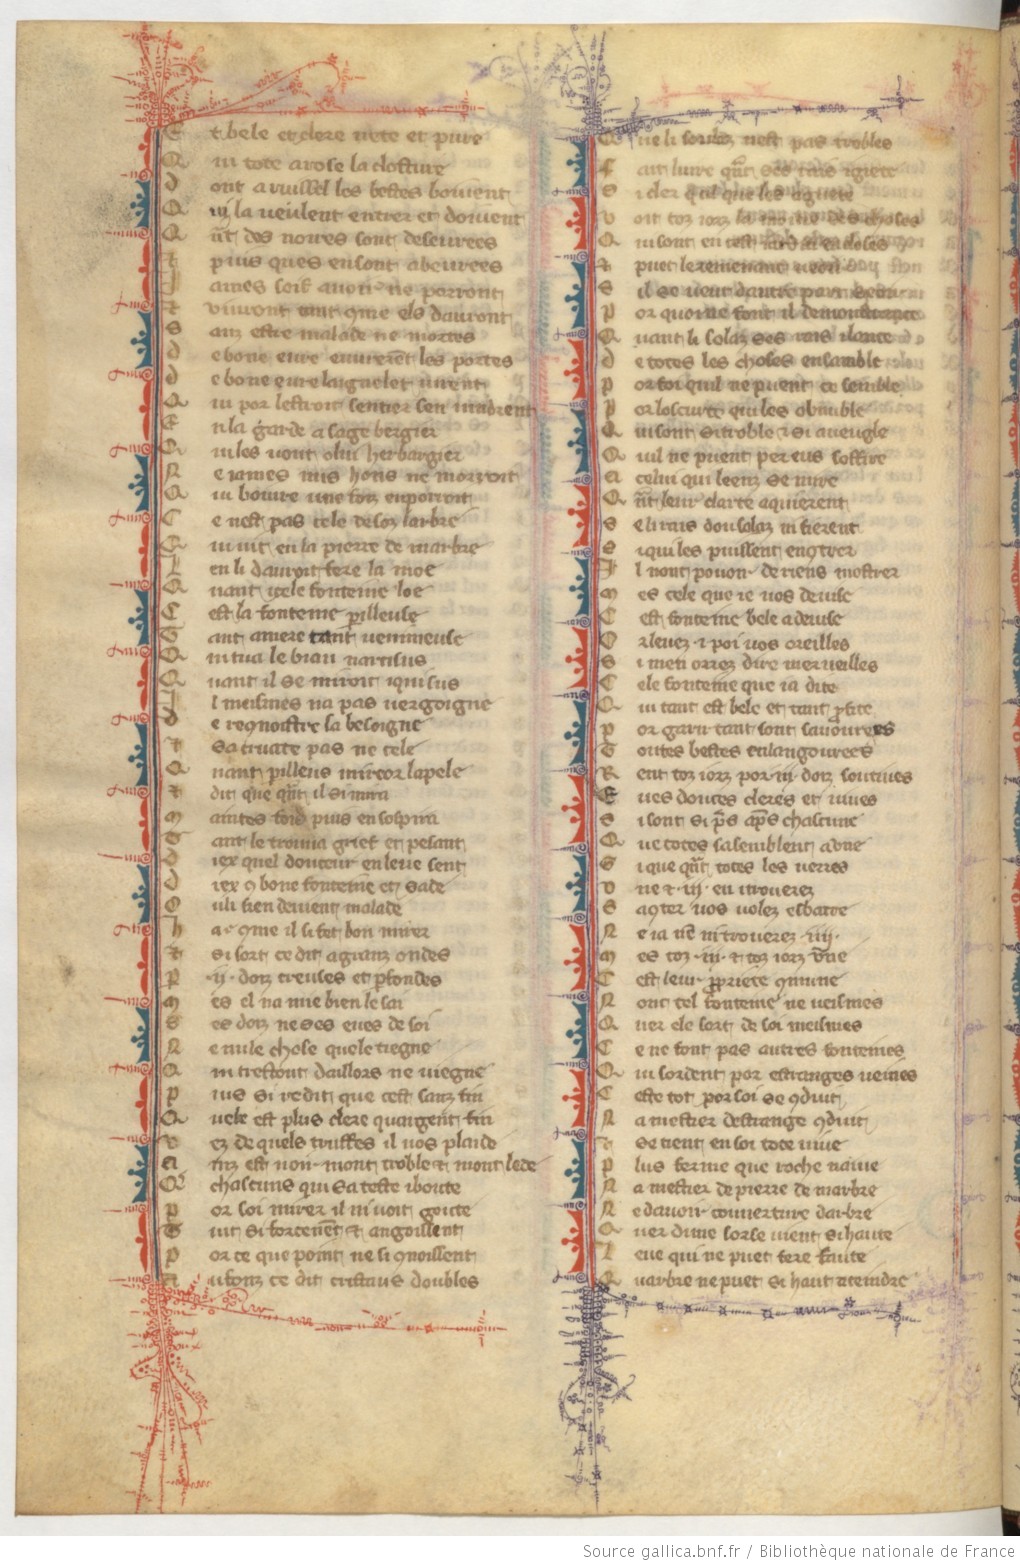 E t bele et clere nete et pure
Q ui tote arose la closture
d ont au ruissel les bestes boivent
Q ui la veulent entrer et doivent
Q ñt des noires sont desevrees
t puis ques en sont abevrees
J ames soif avoir ne porront
t vivront tant qme els vauront
S anz estre malade ne mortes
d e bone eure entrerent les portes
d e bone eure laignelet virent
Q ui por lestroit sentier sen
E n la garde a sage bergier
Q ui les vont o lui herbergier
N e james nus hons ne morroit
Q ui boivre une foiz en porroit
C e nest pas cele desoz larbre
Q uil vit en la pierre de marbre
L en li davroit fere la moe
Q uant icele fonteine loe
C est la fonteine perilleuse
T ant amere tant venimeuse
Q ui tua le biau narcisus
Q uant il se miroit iqui sus
J l meismes na pas vergoigne
d e reqnoistre la besoigne
t sa cruaute pas ne cele
Q uant perilleus miroor lapele
t dit que qñt il si mira
m aintes foiz puis en sospira
T ant le trouva grief et pesant
d iex quel douceur en leve sent
d iex 9 bone fonteine et sade
O u li sien devient malade
h a qme il si fet bon mirer
t si sort ce dit a granz ondes
P .ij. doiz creuses et pfondes
m es el na mie bien le sai
S es doiz ne ses eves de soi
N e nule chose quele tiegne
Q ui trestout daillors ne viegne
p uis si redit que cest sanz fin
Q uele est plus clere quargent fin
v ez de quels truffes il vos plaide
ainz est noir mont troble et mont lede
Q chascuns qui sa teste i boute
p or soi mirer il ni voit goute
T uit si forcenent et angoissent
P or ce que point ne si qnoissent
A u fonz ce dit cristaus doubles
Q ue li solauz nest pas trobles
F ait luire qñt ses rais i giete
S i cler quil que les aguete
v oit toz iorz la moitie des choses
Q ui sont en cest iardin encloses
t puet le remenant veoir
S il se veut dautre part seoir
P or quoi ne font il
Q uant li solaz ses rais i lance
d e totes les choses ensamble
p or foi quil ne puent ce semble
P or loscurte qui les obnuble
Q ui sont si troble et si aveugle
Q uil ne puent per eus soffire
a celui qui leenz se mire
Q ñt leur clarte aquierent
S e li rais dou solaz ni fierent
S i qui les puissent encqtrer
J l nont pooir de riens mostrer
m es cele que ie vos devise
C est fonteine bele a devise
O r levez .i. poi vos oreilles
S i men orrez dire merveilles
C ele fonteine que ia dite
Q ui tant est bele et tant profite
p or garir tant sont savourees
T outes bestes enlangourees
R ent toz iorz por .iij. doiz soutives
E ves douces cleres et vives
S i sont si pres apres chascune
Q ue totes sasemblent a vne
S i que qñt totes les verrez
v ne et .iij. en i troverez
S aqter vos volez esbatre
N e ia ni troverez .iiij.
m es toz .iij. et toz iorz vne
C est leur propriete qmune
N onc tel fonteine ne veismes
Q uer ele sort de soi meismes
C e ne font pas autres fonteines
Q ui sordent por estranges veines
C este tot por soi se qduit
N a mestier destrange qduit
t se tient en soi tote vive
p lus ferme que roche naive
N a mestier de pierre de marbre
N e davoir couverture darbre
Q uer dune sorse vient si haute
L eve qui ne puet fere faute
Q uarbre ne puet si haut ateindre
Source gallica.bnf.fr / Bibliothèque nationale de France